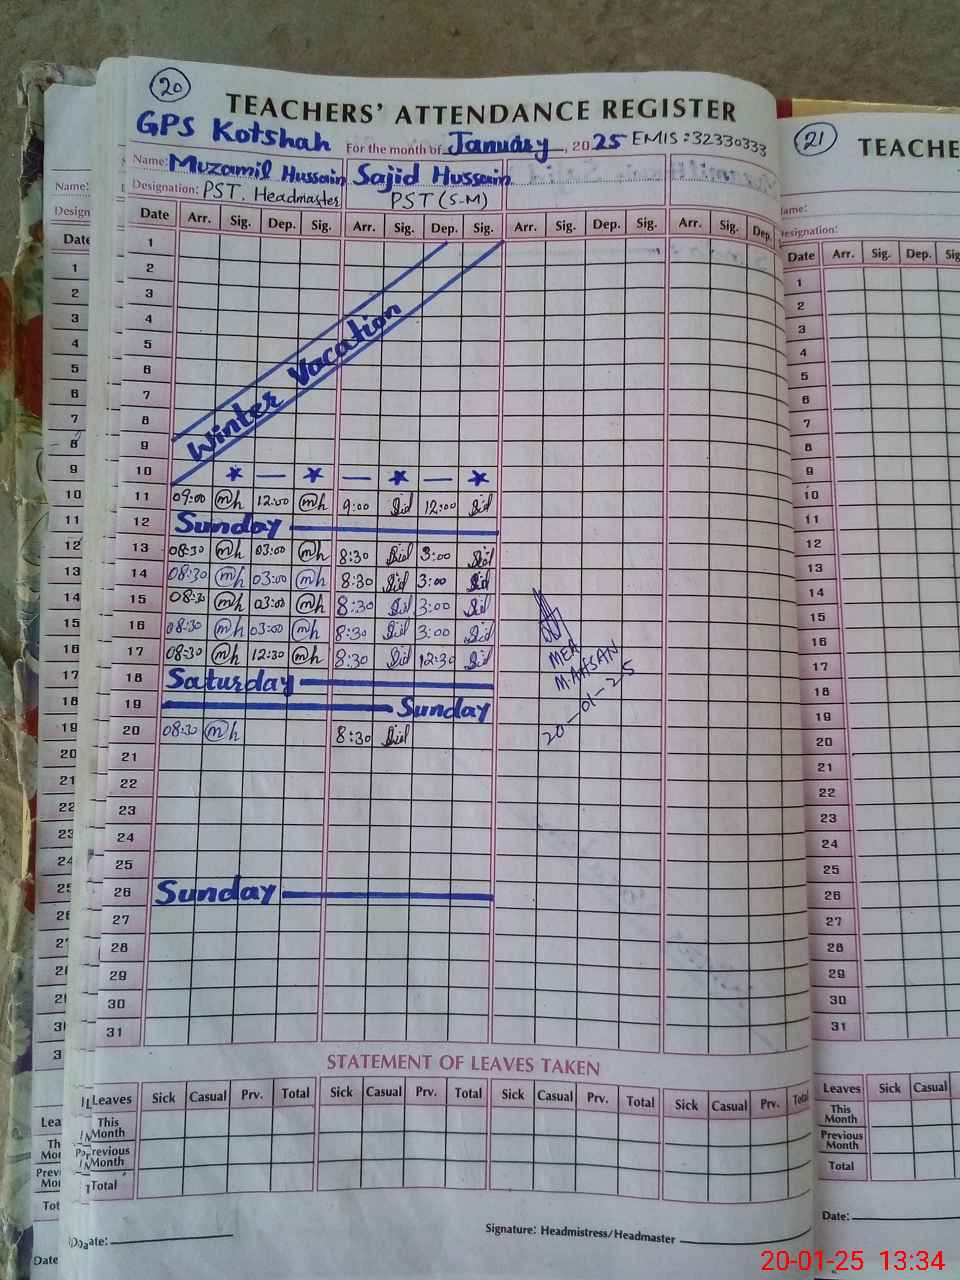 20
TEACHERS' ATTENDANCE REGISTER
GPS Kotshah For the month of January, 2025 EMIS:32330333
Name: Muzamil Hussain Sajid Hussain
Designation: PST, Headmaster PST (S-M)
Date Arr. Sig. Dep. Sig. Arr. Sig. Dep. Sig. Arr. Sig. Dep. Sig. Arr. Sig. Dep.
1
2
3
4
5
6
7
8
9
Winter Vacation
10 * — * — * — *
11 09:00 mh 12:00 mh 9:00 12:00
12 Sunday
13 08:30 mh 03:00 mh 8:30 3:00
14 08:30 mh 03:00 mh 8:30 3:00
15 08:30 mh 03:00 mh 8:30 3:00
16 08:30 mh 03:00 mh 8:30 3:00
17 08:30 mh 12:30 mh 8:30 12:30
18 Saturday
19 Sunday
20 08:30 mh 8:30
MEA
M. AHSAN
20-01-25
21
22
23
24
25
26 Sunday
27
28
29
30
31
STATEMENT OF LEAVES TAKEN
Leaves Sick Casual Prv. Total Sick Casual Prv. Total Sick Casual Prv. Total Sick Casual Prv. Total
This Month
Previous Month
Total
Date:
Signature: Headmistress/Headmaster
21
TEACHE
Name:
Designation:
Date Arr. Sig. Dep. Sig
1
2
3
4
5
6
7
8
9
10
11
12
13
14
15
16
17
18
19
20
21
22
23
24
25
26
27
28
29
30
31
Leaves Sick Casual
This Month
Previous Month
Total
Date:
20-01-25 13:34